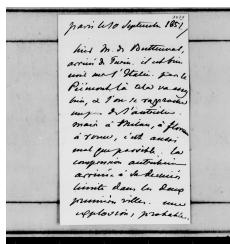 paris le 10 Septembre 1851/
hier M. de Butenval,
arrivé de Turin. il est bien
noir sur l'Italie. pour le
Piémont là cela va assez
bien, et l'on se rapproche
un peu de l'autriche
mais à Milan, à florence
à rome, c'est aussi
mal que possible. la
compression autrichienne
arrivée à sa dernière
limite dans les deux
premières villes. une
explosion, probable.